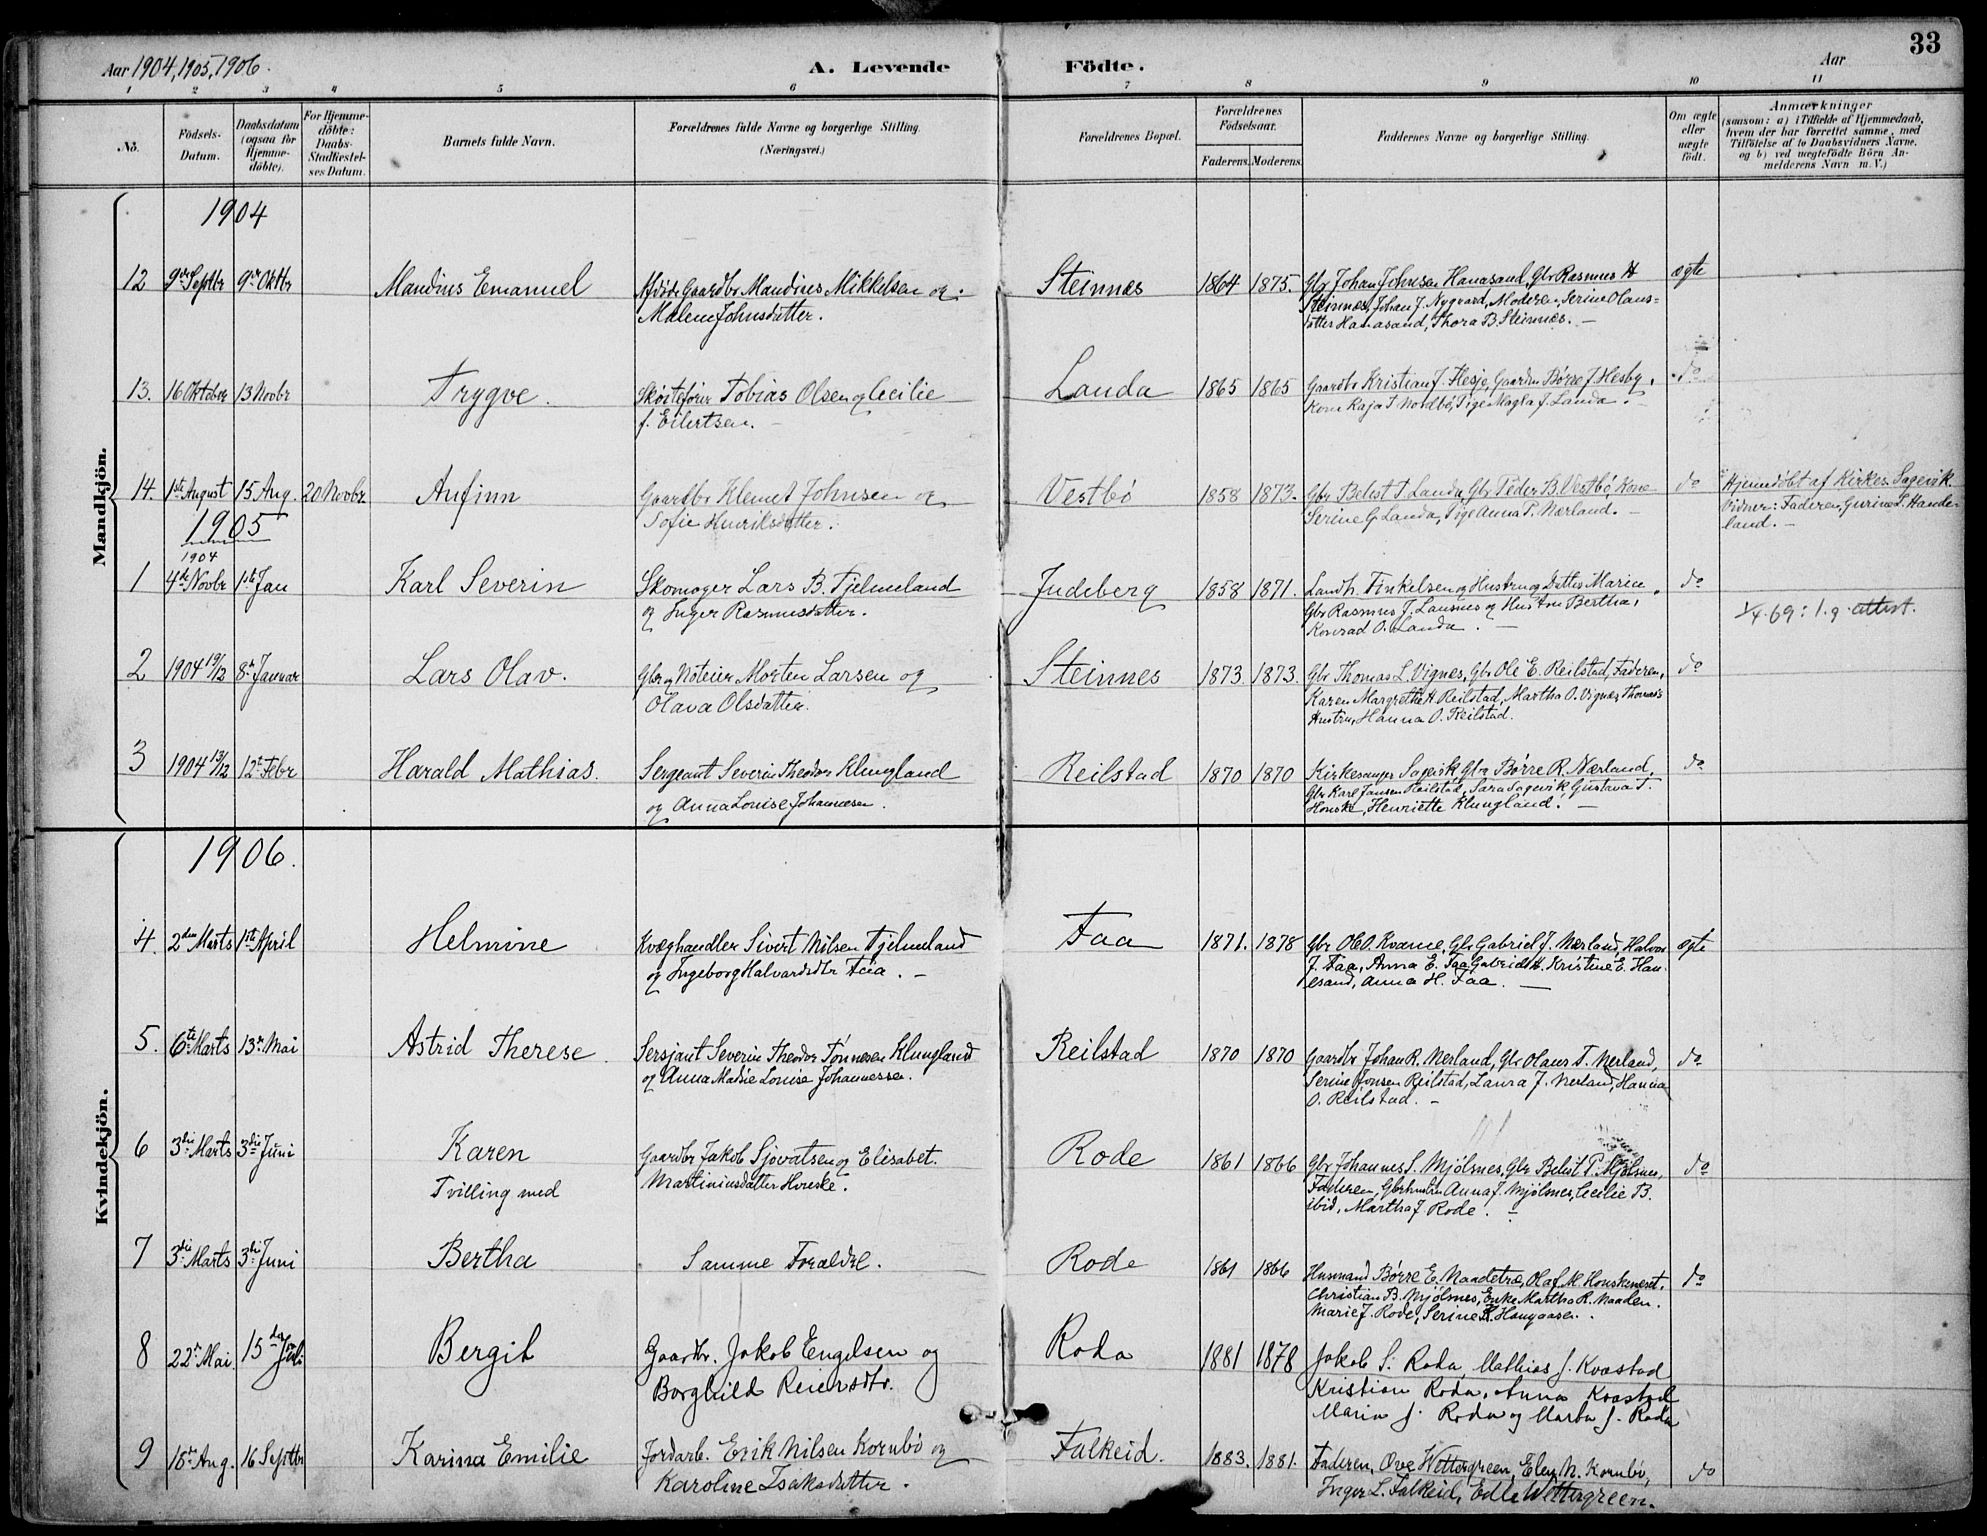 33
Aar 1904, 1905, 1906.
A. Levende Födte.
Aar
1 2 3 4 5 6 7 8 9 10 11
No. Födsels-Datum. Daabsdatum (ogsaa for Hjemme-döbte). For Hjemme-döbte: Daabs-Stadfæstel-ses Datum. Barnets fulde Navn. Forældrenes fulde Navne og borgerlige Stilling. (Næringsvei.) Forældrenes Bopæl. Forældrenes Födselsaar. Faderens. Moderens. Faddernes Navne og borgerlige Stilling. Om ægte eller uægte födt. Anmærkninger (saasom: a) i Tilfælde af Hjemmedaab, hvem der har forrettet samme, med Tilföielse af to Daabsvidners Navne, og b) ved uægtefödte Börn An-melderens Navn m.V.)
Mandkjön.
1904
12 9de Septbr 9de Oktbr Mandius Emanuel Afdöde Gaardbr Mandius Mikkelsen og Steinnes 1864 1875. Gbr Johan Johnsen Hanasand, Gbr Rasmus H ægte
Malene Johnsdatter. Steinnes, Johan J. Nygaard, Moderen, Serine Olaus-
datter Hanasand, Thora B. Steinnes. —
13. 16 Oktober 13 Novbr Trygve. Skøiteförer Tobias Olsen og Cecilie Landa 1865 1865 Gaardbr Kristian J. Hesje, Gaardm Børre J. Hesby, do
f. Eilertsen. Kone Kaja T Nordbø, Pige Magla J. Landa. —
14. 1ste August 15 Aug. 20 Novbr Anfinn Gaardbr Klemet Johnsen og Vestbö 1858 1873. Gbr Belest T Landa, Gbr Peder B. Vestbö, Kone do Hjemmedöbt af Kirkes. Sagevik
Sofie Henriksdatter. Serine G Landa, Pige Anna T. Nærland. — Vidner: Faderen, Gurine L. Hande-
land. —
1905
1904
1 4de Novbr 1ste Jan Karl Severin Skomager Lars B. Tjelmeland Judeberg 1858 1871. Landh. Finkelsen og Hustru og Datter Marie, do
og Inger Rasmusdatter. Gbr Rasmus J. Lausnes og Hustru Bertha, 1/4.69: 1.g. attest.
Konrad O. Landa. —
2 1904 19/12 8de Januar Lars Olav. Gbr og Noteier Morten Larsen og Steinnes 1873. 1873. Gbr Thomas L Vignes, Gbr Ole E. Reilstad, Faderen, do
Olava Olsdatter. Karen Margrethe H Reilstad, Martha O. Vignes, Thomas's
Hustru, Hanna O. Reilstad.
3 1904 13/12 12te Febr Harald Mathias. Sergeant Severin Theodor Klungland Reilstad 1870 1870 Kirkesanger Sagevik, Gbr Børre R. Nærland, do
og Anna Louise Johannesen. Gbr Karl Jansen Reilstad, Sara Sagevik, Gustava T.
Honske, Henriette Klungland. —
Kvindekjön.
1906.
4. 2den Marts 1ste April Helmine Kvæghandler Sivert Nilsen Tjelmeland Faa 1871. 1878 Gbr Ole O. Kvame, Gbr Gabriel J. Nærland, Halvor ægte
og Ingeborg Halvardsdtr Faa. — J. Faa, Anna E. Faa, Gabriel H. Kristine E. Han-
esand, Anna H. Faa. —
5. 6te Marts 13de Mai Astrid Therese. Sersjant Severin Theodor Tønnesen Klungland Reilstad 1870 1870 Gaardbr Johan R. Nerland, Gbr Olaus T. Nerland, do
og Anna Madsie Louise Johannessen. Serine Jonsen Reilstad, Laura J. Nerland, Hanna
O. Reilstad. —
6 3die Marts 3die Juni Karen Gaardbr Jakob Sjovatsen og Elisabet. Rode 1861 1866 Gbr Johannes S. Mjölsnes, Gbr Belest P. Mjölsnes, do
Tvilling med Martiniusdatter Hoveske. Faderen, Gbrhustru Anna J. Mjölsnes, Cecilie B.
ibid, Martha J Rode. —
7 3die Marts 3die Juni Bertha Samme Forældre. Rode 1861 1866 Husmand Börre E. Naadetræ, Olaf M. Honskeneset, do
Christian B. Mjölsnes, Enke Martha R. Naaden.
Marie J. Rode, Serine K. Haugaasen.
8 22de Mai. 15de Juli Bergit Gaardbr. Jakob Engelsen og Roda 1881 1878 Jakob S. Roda, Mathias J. Kvastad
Borghild Reiersdtr. Kristian Roda, Anna Kvastad
Maria J. Roda og Marta J. Roda
9 15de Aug. 16 Septbr Karina Emilie Jordarb. Erik Nilsen Kornbö og Falkeid. 1883. 1881. Faderen, Ove Wettergreen, Elen N. Kornbö, do
Karoline Isaksdatter. Inger L. Falkeid, Edle Wettergreen.